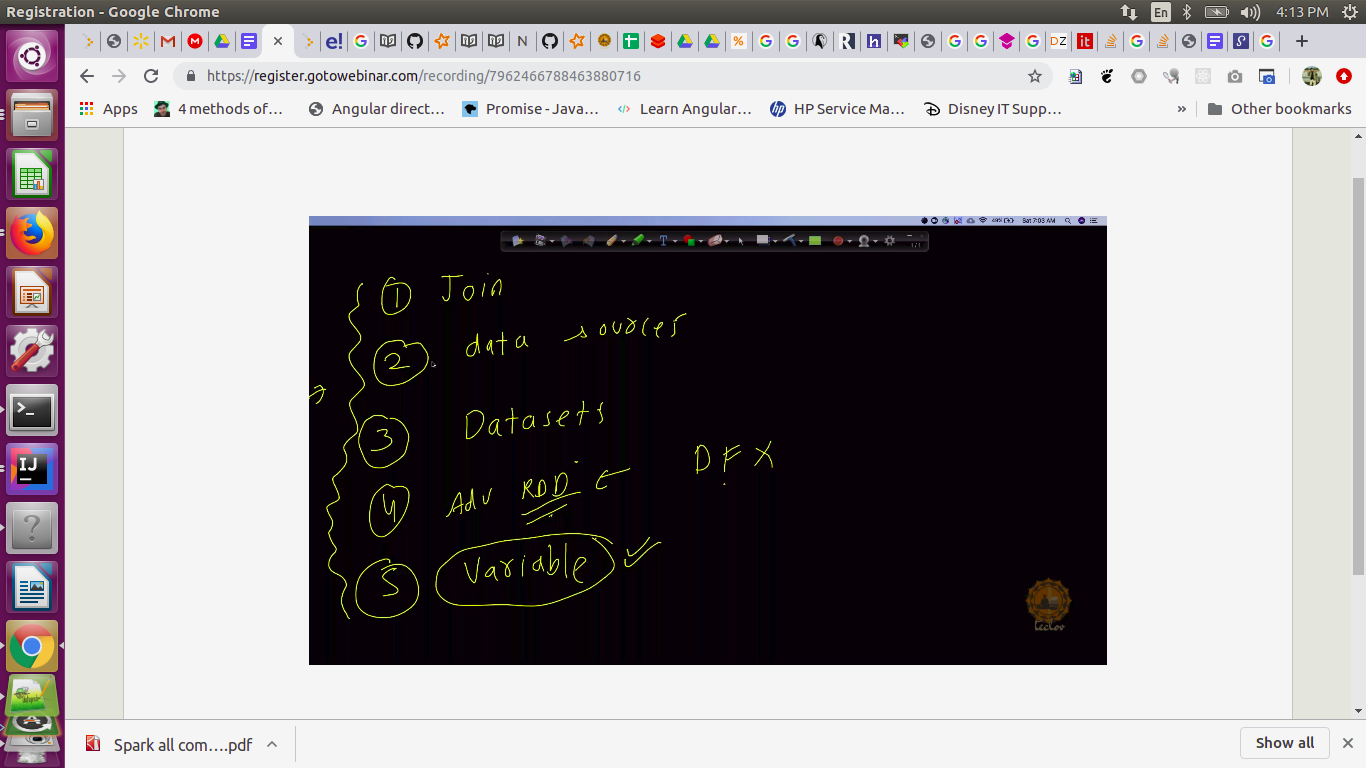 Registration - Google Chrome
En
4:13 PM
https://register.gotowebinar.com/recording/7962466788463880716
Apps
4 methods of...
Angular direct...
Promise - Java...
Learn Angular...
HP Service Ma...
Disney IT Supp...
»
Other bookmarks
49%
Sat 7:03 AM
1/1
1 Join
2 data sources
3 Datasets
4 Adv RDD
DF X
5 Variable
Spark all com....pdf
Show all